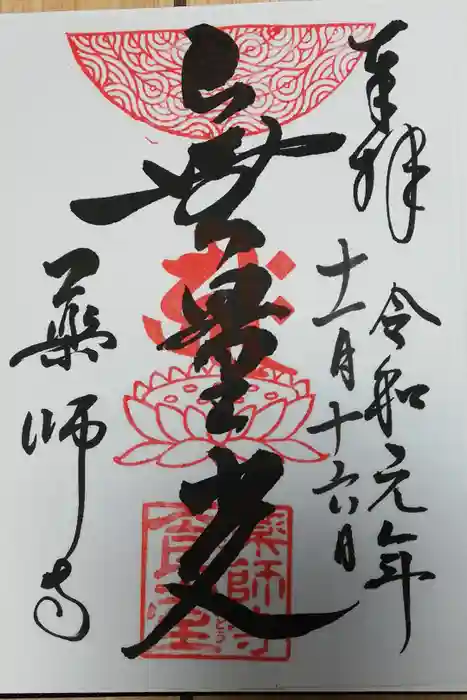 奉拝
令和元年
十一月十六日
無量光
薬師寺
薬師寺
食堂